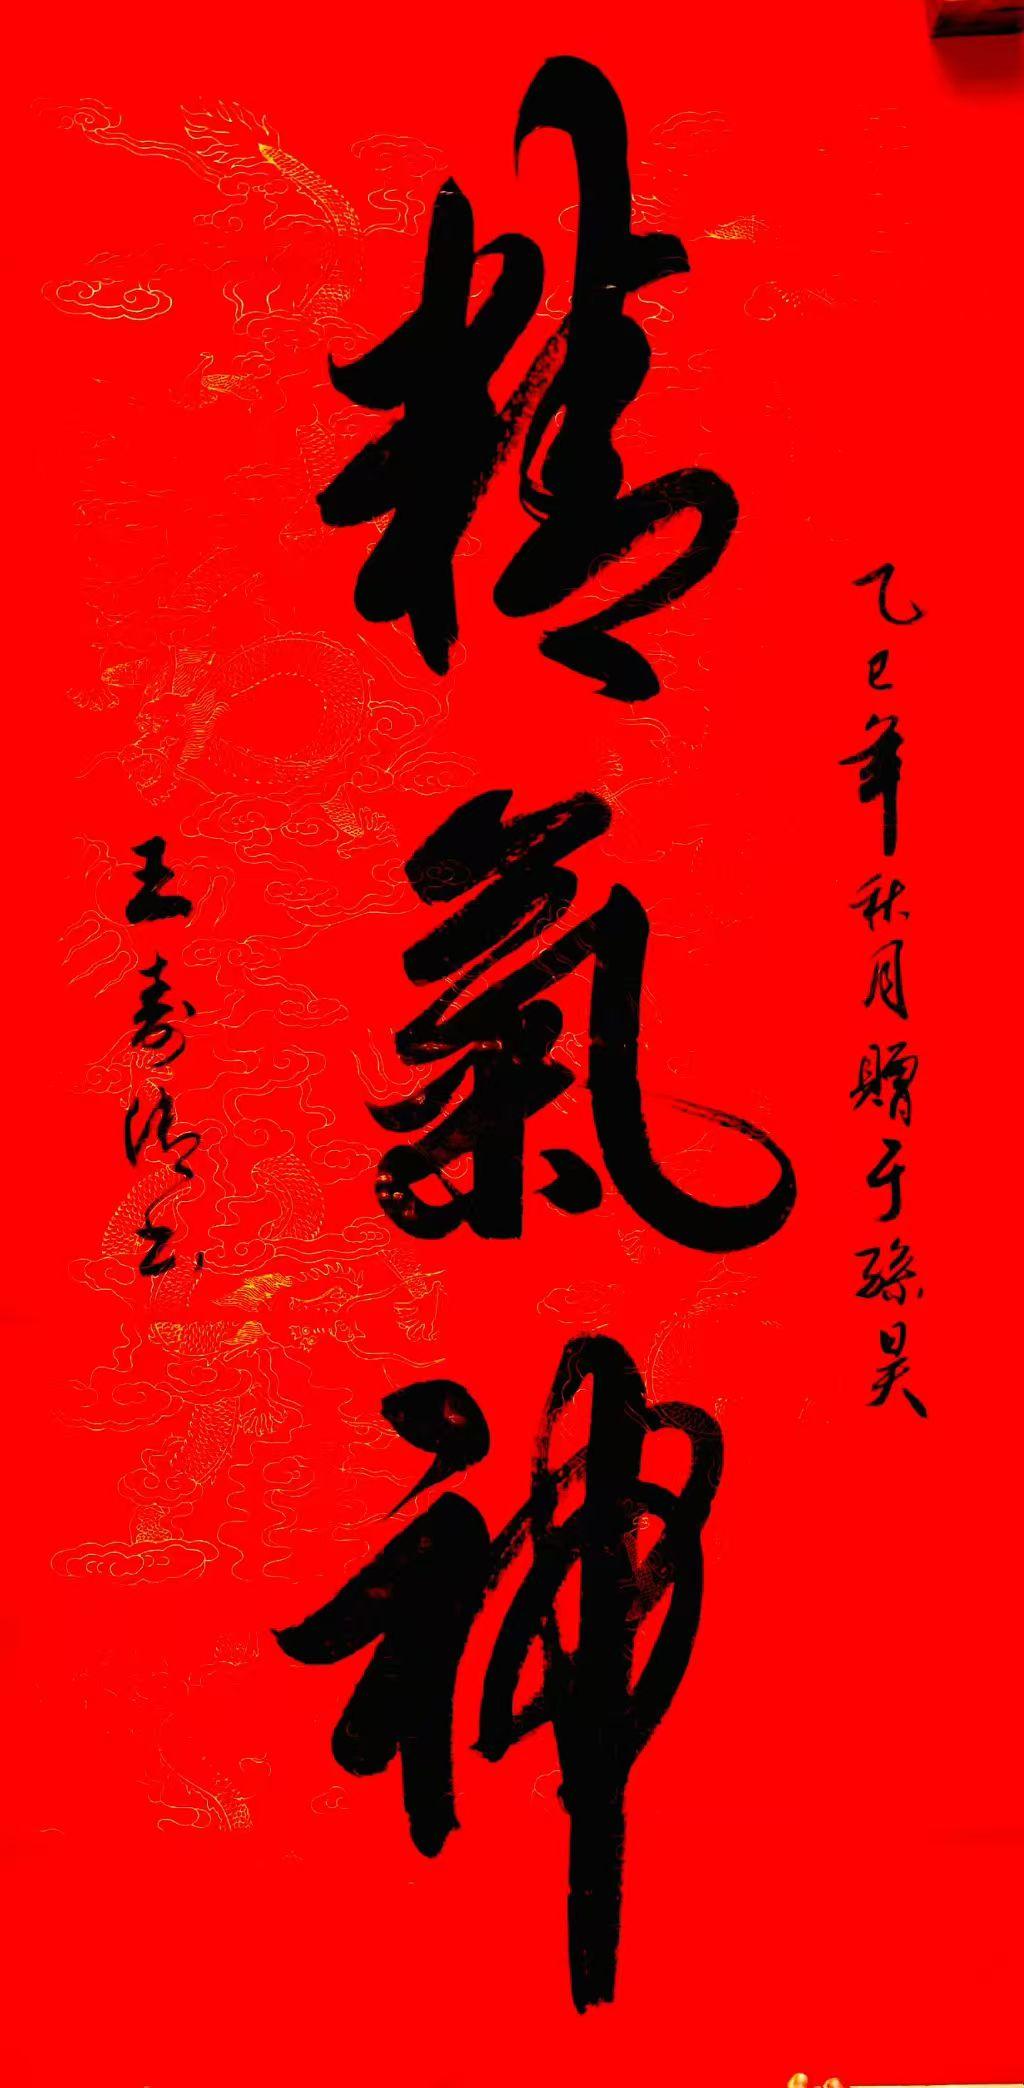 乙巳年秋月贈于孫昊
精氣神
王壽清书